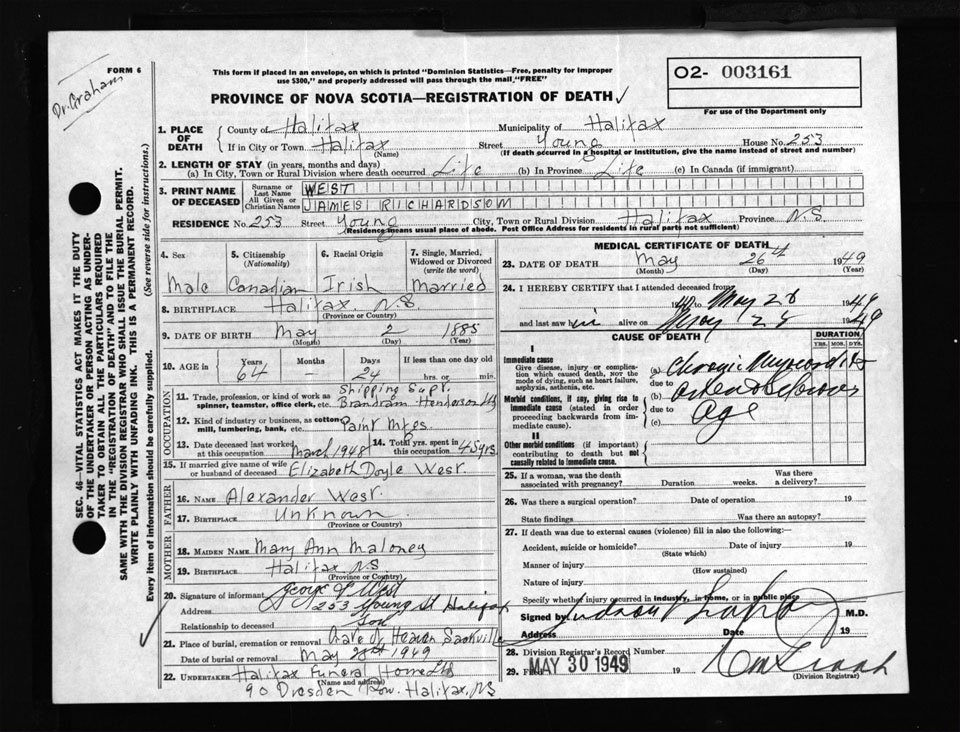 FORM 6
Dr. Graham
This form if placed in an envelope, on which is printed "Dominion Statistics—Free, penalty for improper
use $300," and properly addressed will pass through the mail, "FREE"
O2- 003161
PROVINCE OF NOVA SCOTIA—REGISTRATION OF DEATH
For use of the Department only
1. PLACE OF DEATH
County of Halifax Municipality of Halifax
If in City or Town Halifax Street Young House No. 253
(Name) (If death occurred in a hospital or institution, give the name instead of street and number)
2. LENGTH OF STAY (in years, months and days)
(a) In City, Town or Rural Division where death occurred Life (b) In Province Life (c) In Canada (if immigrant)
3. PRINT NAME OF DECEASED
Surname or Last Name WEST
All Given or Christian Names JAMES RICHARDSON
RESIDENCE No. 253 Street Young City, Town or Rural Division Halifax Province N.S.
(Residence means usual place of abode. Post Office Address for residents in rural parts not sufficient)
SEC. 46—VITAL STATISTICS ACT MAKES IT THE DUTY
OF THE UNDERTAKER OR PERSON ACTING AS UNDER-
TAKER TO OBTAIN ALL THE PARTICULARS REQUIRED
IN THE "REGISTRATION OF DEATH" AND TO FILE THE
SAME WITH THE DIVISION REGISTRAR WHO SHALL ISSUE THE BURIAL PERMIT.
WRITE PLAINLY WITH UNFADING INK. THIS IS A PERMANENT RECORD.
Every item of information should be carefully supplied. (See reverse side for instructions.)
4. Sex Male
5. Citizenship (Nationality) Canadian
6. Racial Origin Irish
7. Single, Married, Widowed or Divorced (write the word) Married
8. BIRTHPLACE Halifax N.S
(Province or Country)
9. DATE OF BIRTH May 2 1885
(Month) (Day) (Year)
10. AGE in Years 64 Months – Days 24 If less than one day old hrs. or min.
OCCUPATION
11. Trade, profession, or kind of work as spinner, teamster, office clerk, etc. Shipping Supt. Brandram Henderson Ltd
12. Kind of industry or business, as cotton mill, lumbering, bank, etc. Paint Mfgs.
13. Date deceased last worked at this occupation March 1948 14. Total yrs. spent in this occupation 45 yrs.
15. If married give name of wife or husband of deceased Elizabeth Doyle West.
FATHER
16. NAME Alexander West.
17. BIRTHPLACE Unknown
(Province or Country)
MOTHER
18. MAIDEN NAME Mary Ann Maloney
19. BIRTHPLACE Halifax N.S
(Province or Country)
20. Signature of informant George West
Address 253 Young St Halifax
Relationship to deceased Son
21. Place of burial, cremation or removal Gate of Heaven Sackville
Date of burial or removal May 28th 1949
22. UNDERTAKER Halifax Funeral Home Ltd
(Name and address)
90 Dresden Row. Halifax, NS
MEDICAL CERTIFICATE OF DEATH
23. DATE OF DEATH May 26th 1949
(Month) (Day) (Year)
24. I HEREBY CERTIFY that I attended deceased from
to May 26 1949
and last saw him alive on May 1949
CAUSE OF DEATH DURATION
YRS. MOS. DYS.
I
Immediate cause
Give disease, injury or complication which caused death, not the mode of dying, such as heart failure, asphyxia, asthenia, etc.
(a) Chronic Myocarditis
due to
Morbid conditions, if any, giving rise to immediate cause (stated in order proceeding backwards from immediate cause).
(b) arteriosclerosis
due to
(c) Age
II
Other morbid conditions (if important) contributing to death but not causally related to immediate cause.
25. If a woman, was the death associated with pregnancy? Duration weeks. Was there a delivery?
26. Was there a surgical operation? Date of operation 19
State findings Was there an autopsy?
27. If death was due to external causes (violence) fill in also the following:—
Accident, suicide or homicide? Date of injury 19
(State which)
Manner of injury
(How sustained)
Nature of injury
Specify whether injury occurred in industry, in home, or in public place
Signed by M.D.
Address Date 19
28. Division Registrar's Record Number
29. MAY 30 1949 19
(Division Registrar)